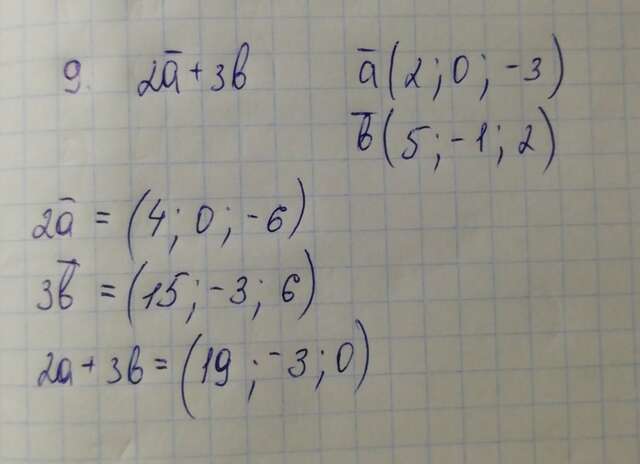 9. 2a̅ + 3b a̅ (2 ; 0 ; -3)
b̅ (5 ; -1 ; 2)
2a̅ = (4 ; 0 ; -6)
3b̅ = (15 ; -3 ; 6)
2a + 3b = (19 ; -3 ; 0)